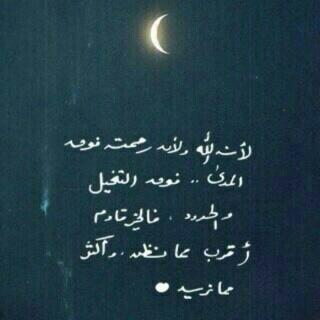 لأنه الله ولأن رحمته فوق
المدى .. فوق التخيل
والحدود ، فالخير قادم
أقرب مما نظن ، وأكثر
مما نريد